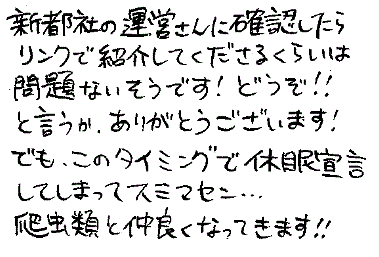 新都社の運営さんに確認したら
リンクで紹介してくださるくらいは
問題ないそうです!どうぞ!!
と言うか、ありがとうございます!
でも、このタイミングで休眠宣言
してしまってスミマセン…
爬虫類と仲良くなってきます!!